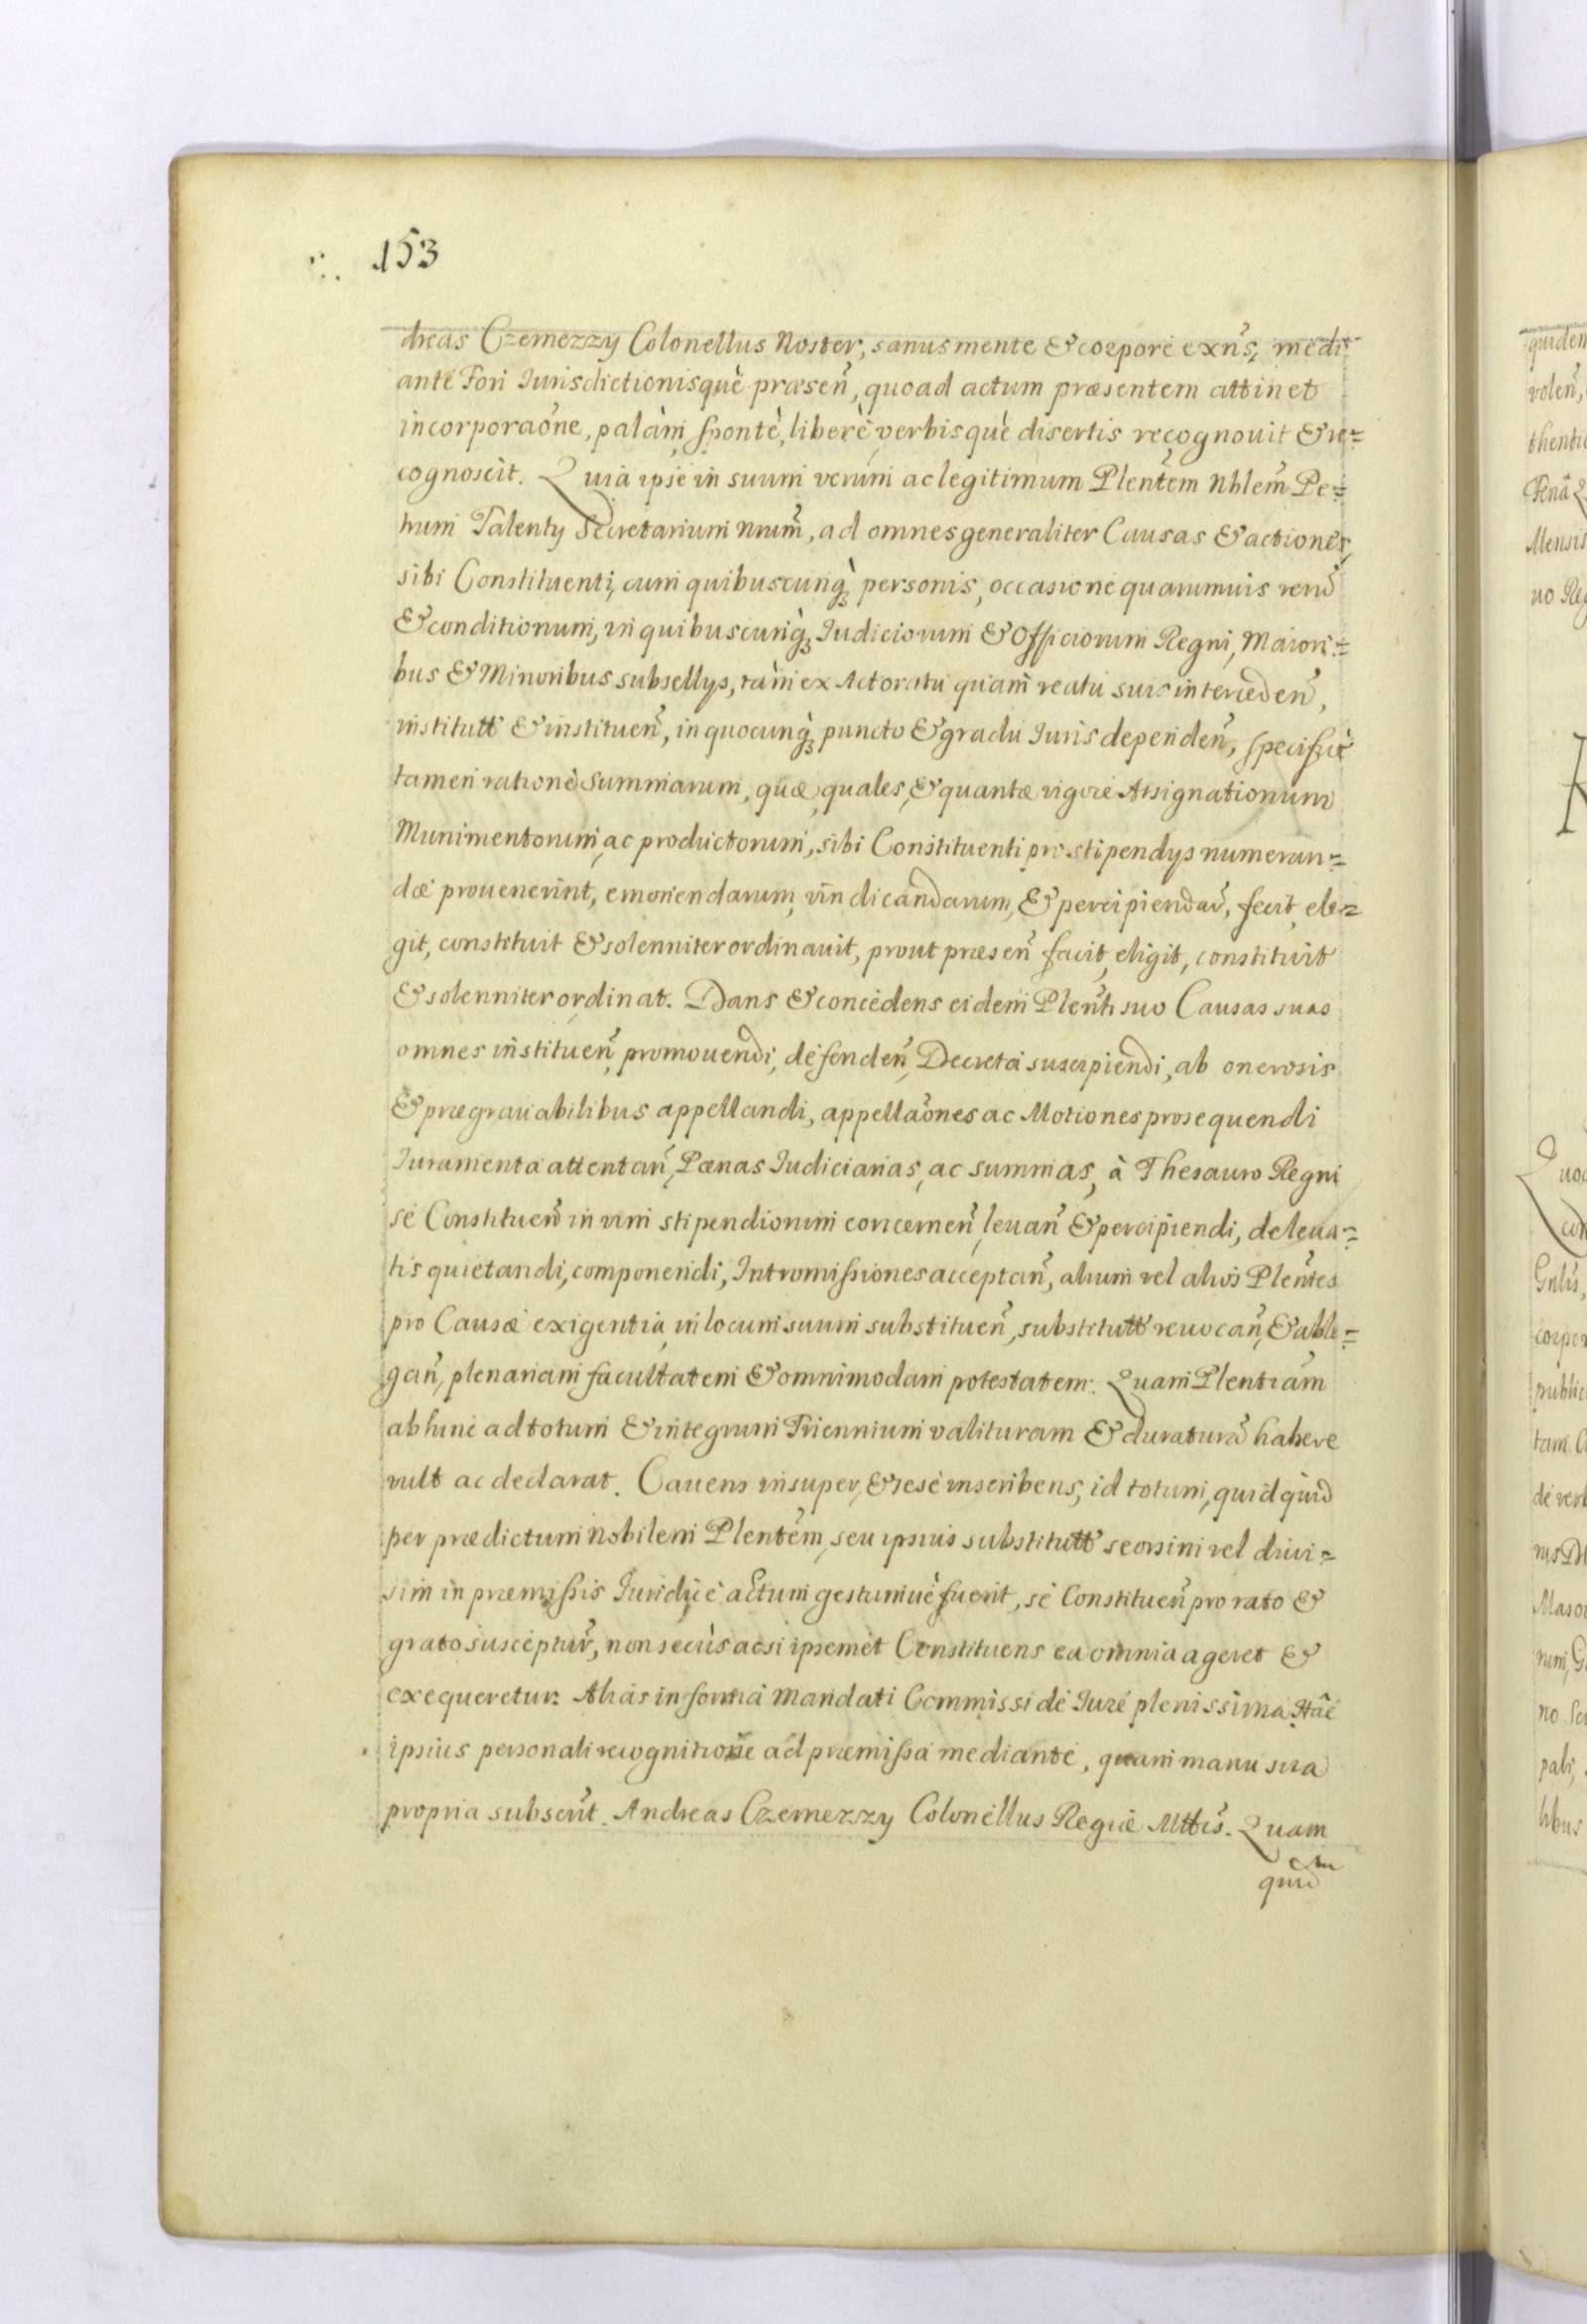 153
dreas Czemerzy Colonellus Noster, sanus mente & corpore exñs, medi
ante Fori Iurisdictionisquè præseñ, quoad actum præsentem attinet
incorporaõne, palàm, spontè, liberè, verbisquè disertis recognouit & re=
cognoscit. Quia ipse in suum verum ac legitimum Plentem Nblem Pe=
trum Talenty Secretarium Nrum, ad omnes generaliter Causas & actiones,
sibi Constituenti, cum quibuscunq; personis, occasione quarumuis reru
& conditionum, in quibuscunq; Iudiciorum & Officiorum Regni, Maiori=
bus & Minoribus subsellys, tàm ex Actoratu quàm reatu suis interceden,
institutt & instituen, in quocunq; puncto & gradu Iuris dependen, specificè
tamen ratione Summarum, quæ, quales, & quantæ vigore Assignationum
Munimentorum, ac productorum, sibi Constituenti pro stipendys numeran=
dæ prouenerint, emonendarum, vindicandarum, & percipiendar, fecit, ele=
git, constituit & solenniter ordinauit, prout præsen facit, eligit, constituit
& solenniter ordinat. Dans & concedens eidem Plenti suo Causas suas
omnes instituen, promouendi, defenden, Decreta suscipiendi, ab onerosis
& prægrauabilibus appellandi, appellaõnes ac Motiones prosequendi
Iuramenta attentan, Pœnas Iudiciarias, ac summas, à Thesauro Regni
se Constituen in vim stipendiorum concernen, leuan & percipiendi, de leua=
tis quietandi, componendi, Intromissiones acceptan, alium vel alios Plentes
pro Causæ exigentia, in locum suum substituen, substitutt reuocan, & able=
gan, plenariam facultatem & omnimodam potestatem. Quam Plentiam
abhinc ad totum & integrum Triennium valituram & duratura habere
vult ac declarat. Cauens insuper, & sese inscribens, id totum, quidquid
per prædictum Nobilem Plentem, seu ipsius substitutt seorsim vel diui=
sim in præmissis Iuridicè actum gestumuè fuerit, se Constituen pro rato &
grato susceptur, non secùs acsi ipsemet Constituens ea omnia ageret &
exequeretur. Alias in forma Mandati Commissi de Iure plenissima. Hac
ipsius personali recognitione ad præmissa mediante, quam manu sua
propria subscrit. Andreas Czemerzy Colonellus Regiæ Mttis. Quam
quid